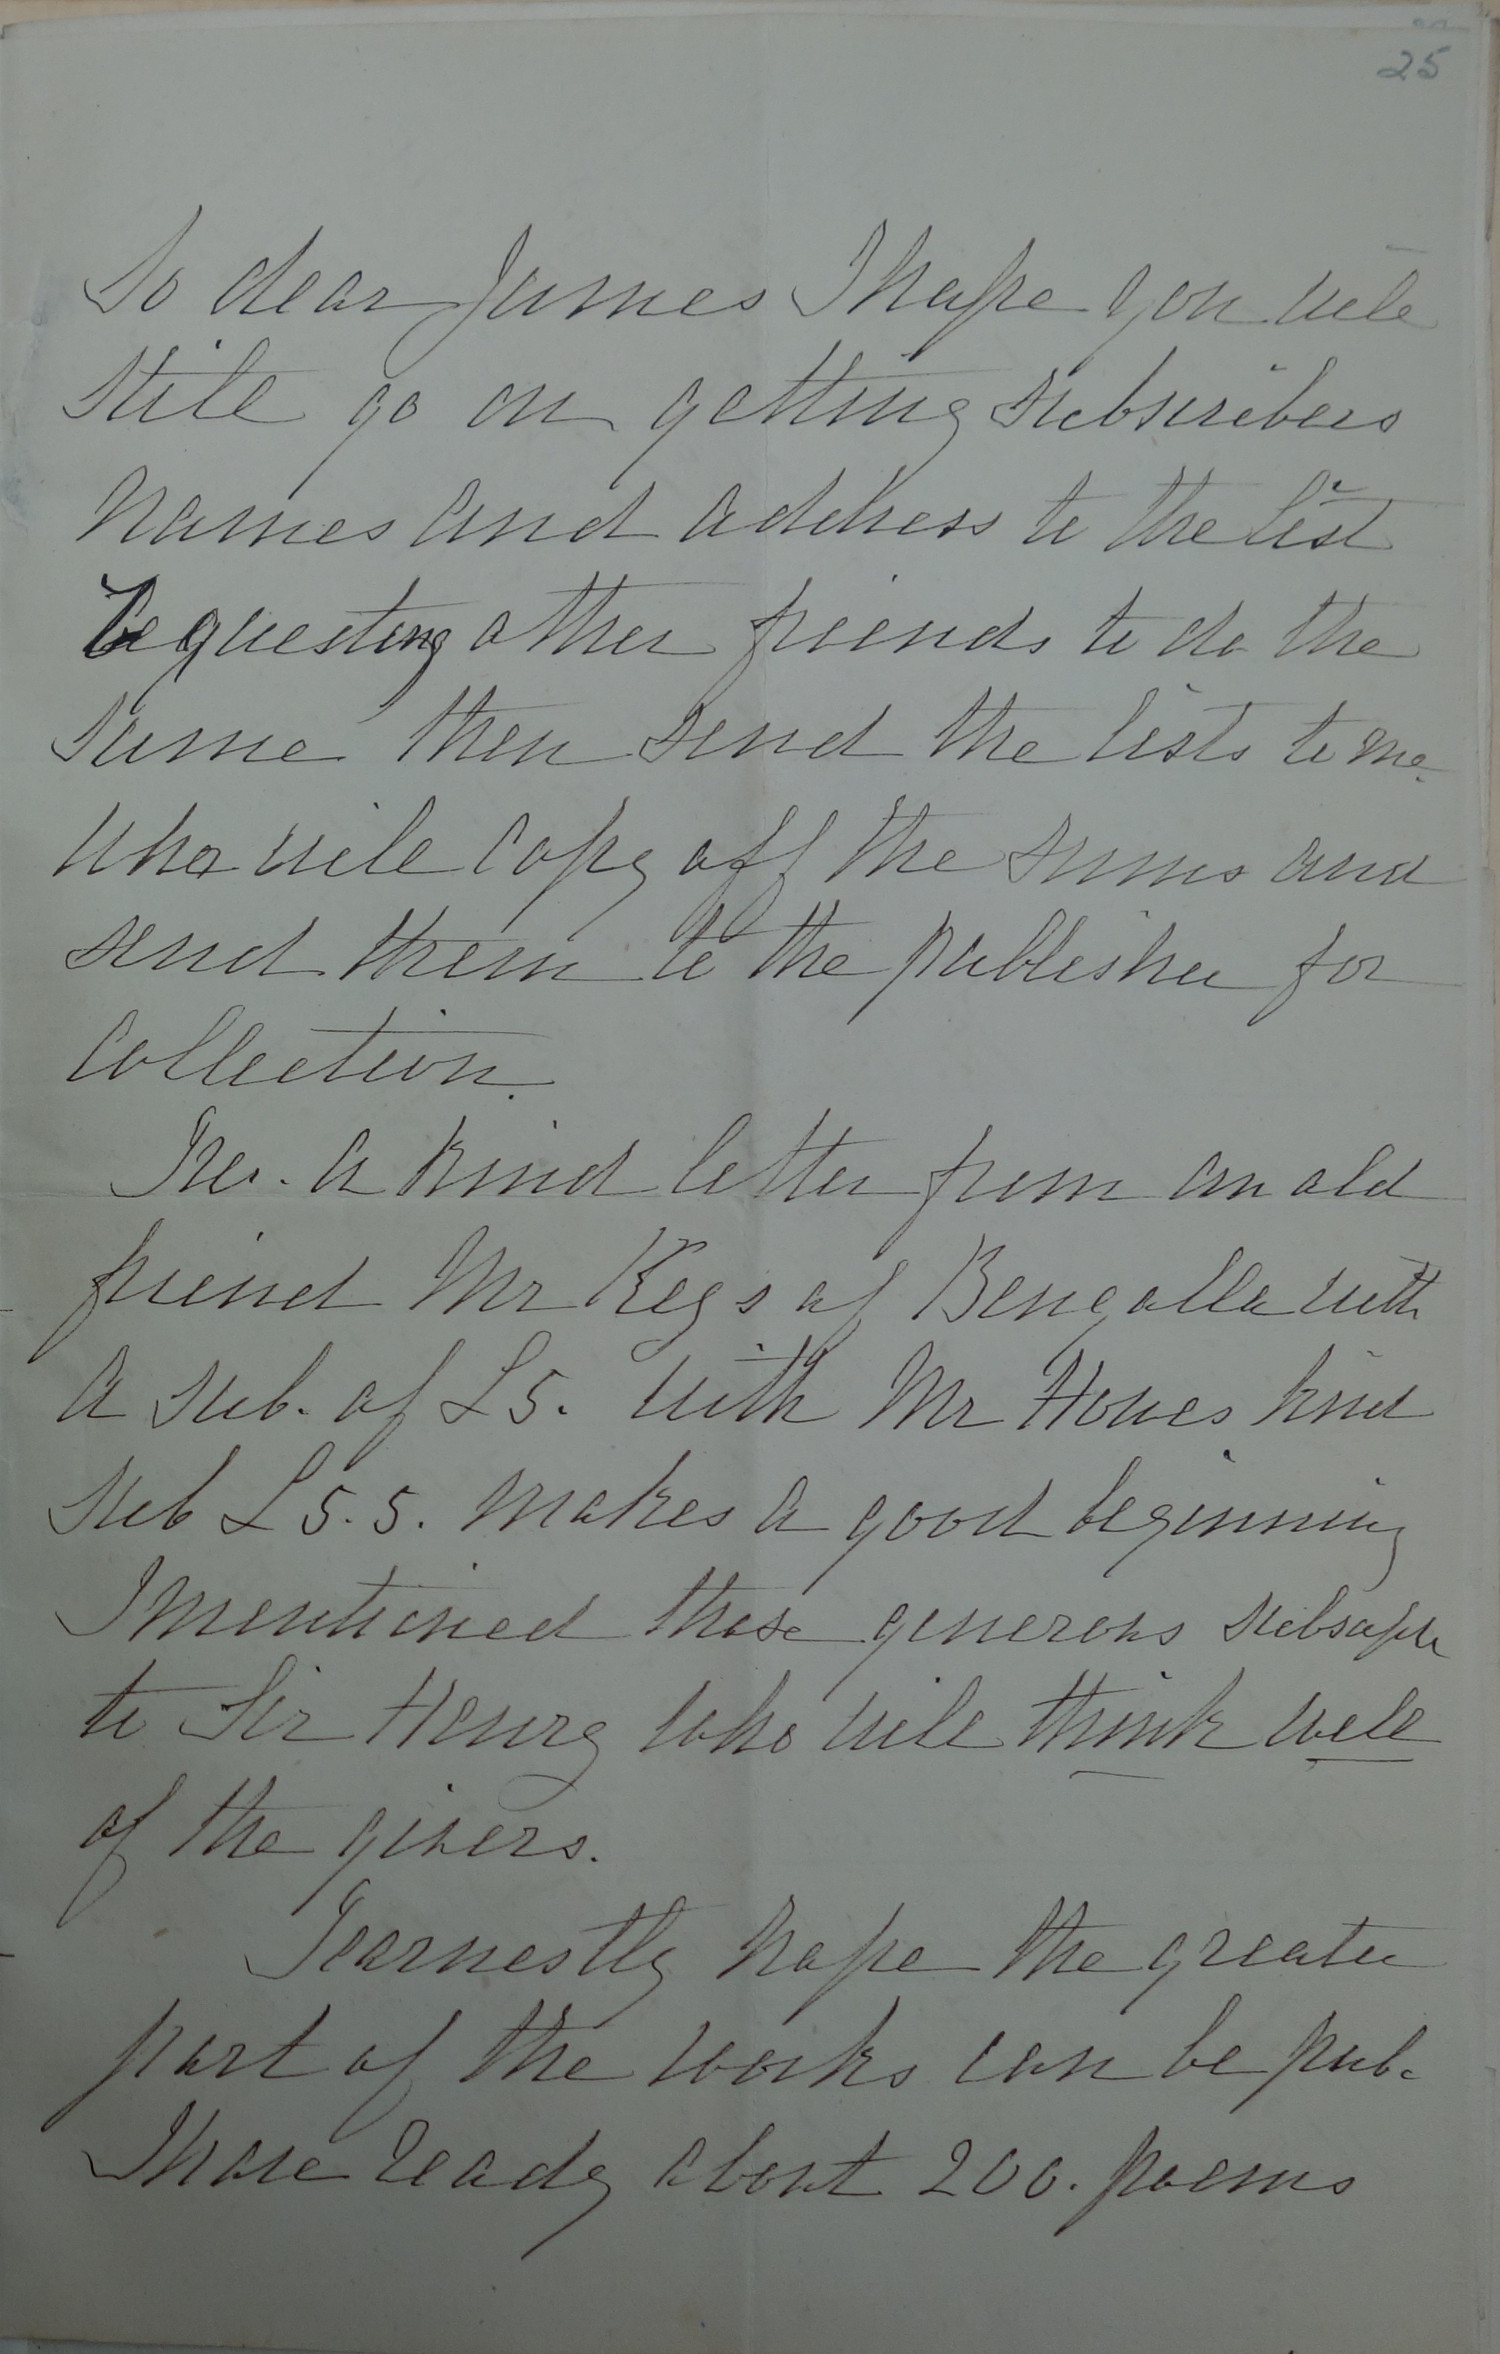 25
So dear James I hope you will
still go on getting subscribers
names and address to the list
requesting other friends to do the
same then send the lists to me
who will copy off the sums and
send them to the publisher for
collection.
I rec. a kind letter from an old
friend Mr Keys of Bengalla with
a sub. of £5. with Mr Howes kind
sub £5.5. makes a good beginning
I mentioned those generous
to Sir Henry who will think well
of the givers.
I earnestly hope the greater
part of the works can be pub.
I have ready about 200. poems